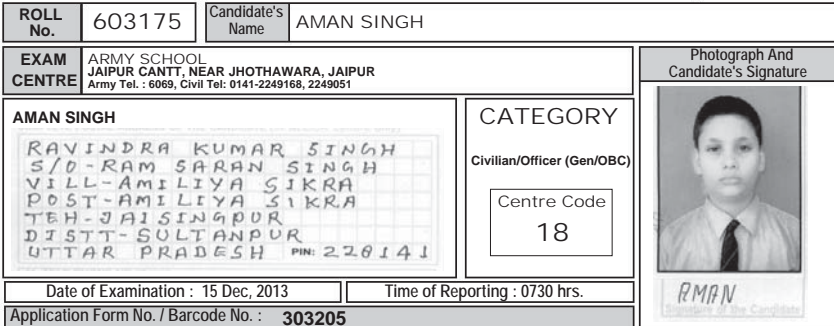 ROLL No. 603175 Candidate's Name AMAN SINGH
EXAM CENTRE
ARMY SCHOOL
JAIPUR CANTT, NEAR JHOTHAWARA, JAIPUR
Army Tel. : 6069, Civil Tel: 0141-2249168, 2249051
Photograph And
Candidate's Signature
AMAN SINGH
RAVINDRA KUMAR SINGH
S/O-RAM SARAN SINGH
VILL-AMILIYA SIKRA
POST-AMILIYA SIKRA
TEH-JAISINGPUR
DISTT-SULTANPUR
UTTAR PRADESH PIN: 228141
CATEGORY
Civilian/Officer (Gen/OBC)
Centre Code
18
AMAN
Signature of the Candidate
Date of Examination : 15 Dec, 2013 Time of Reporting : 0730 hrs.
Application Form No. / Barcode No. : 303205